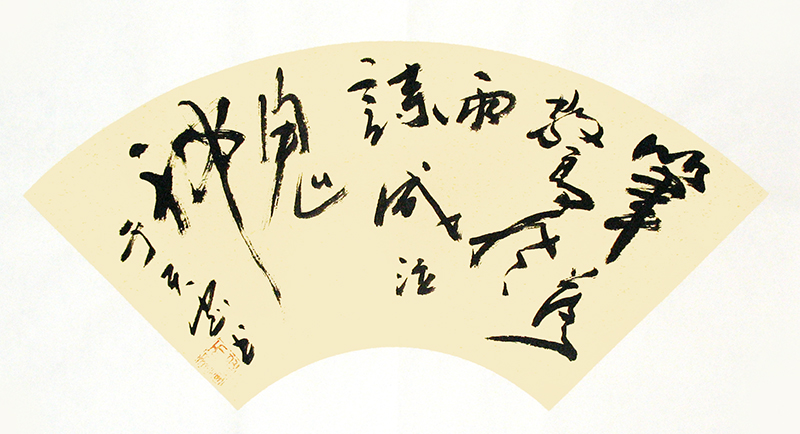 筆落
驚風
雨
詩成泣
鬼
神